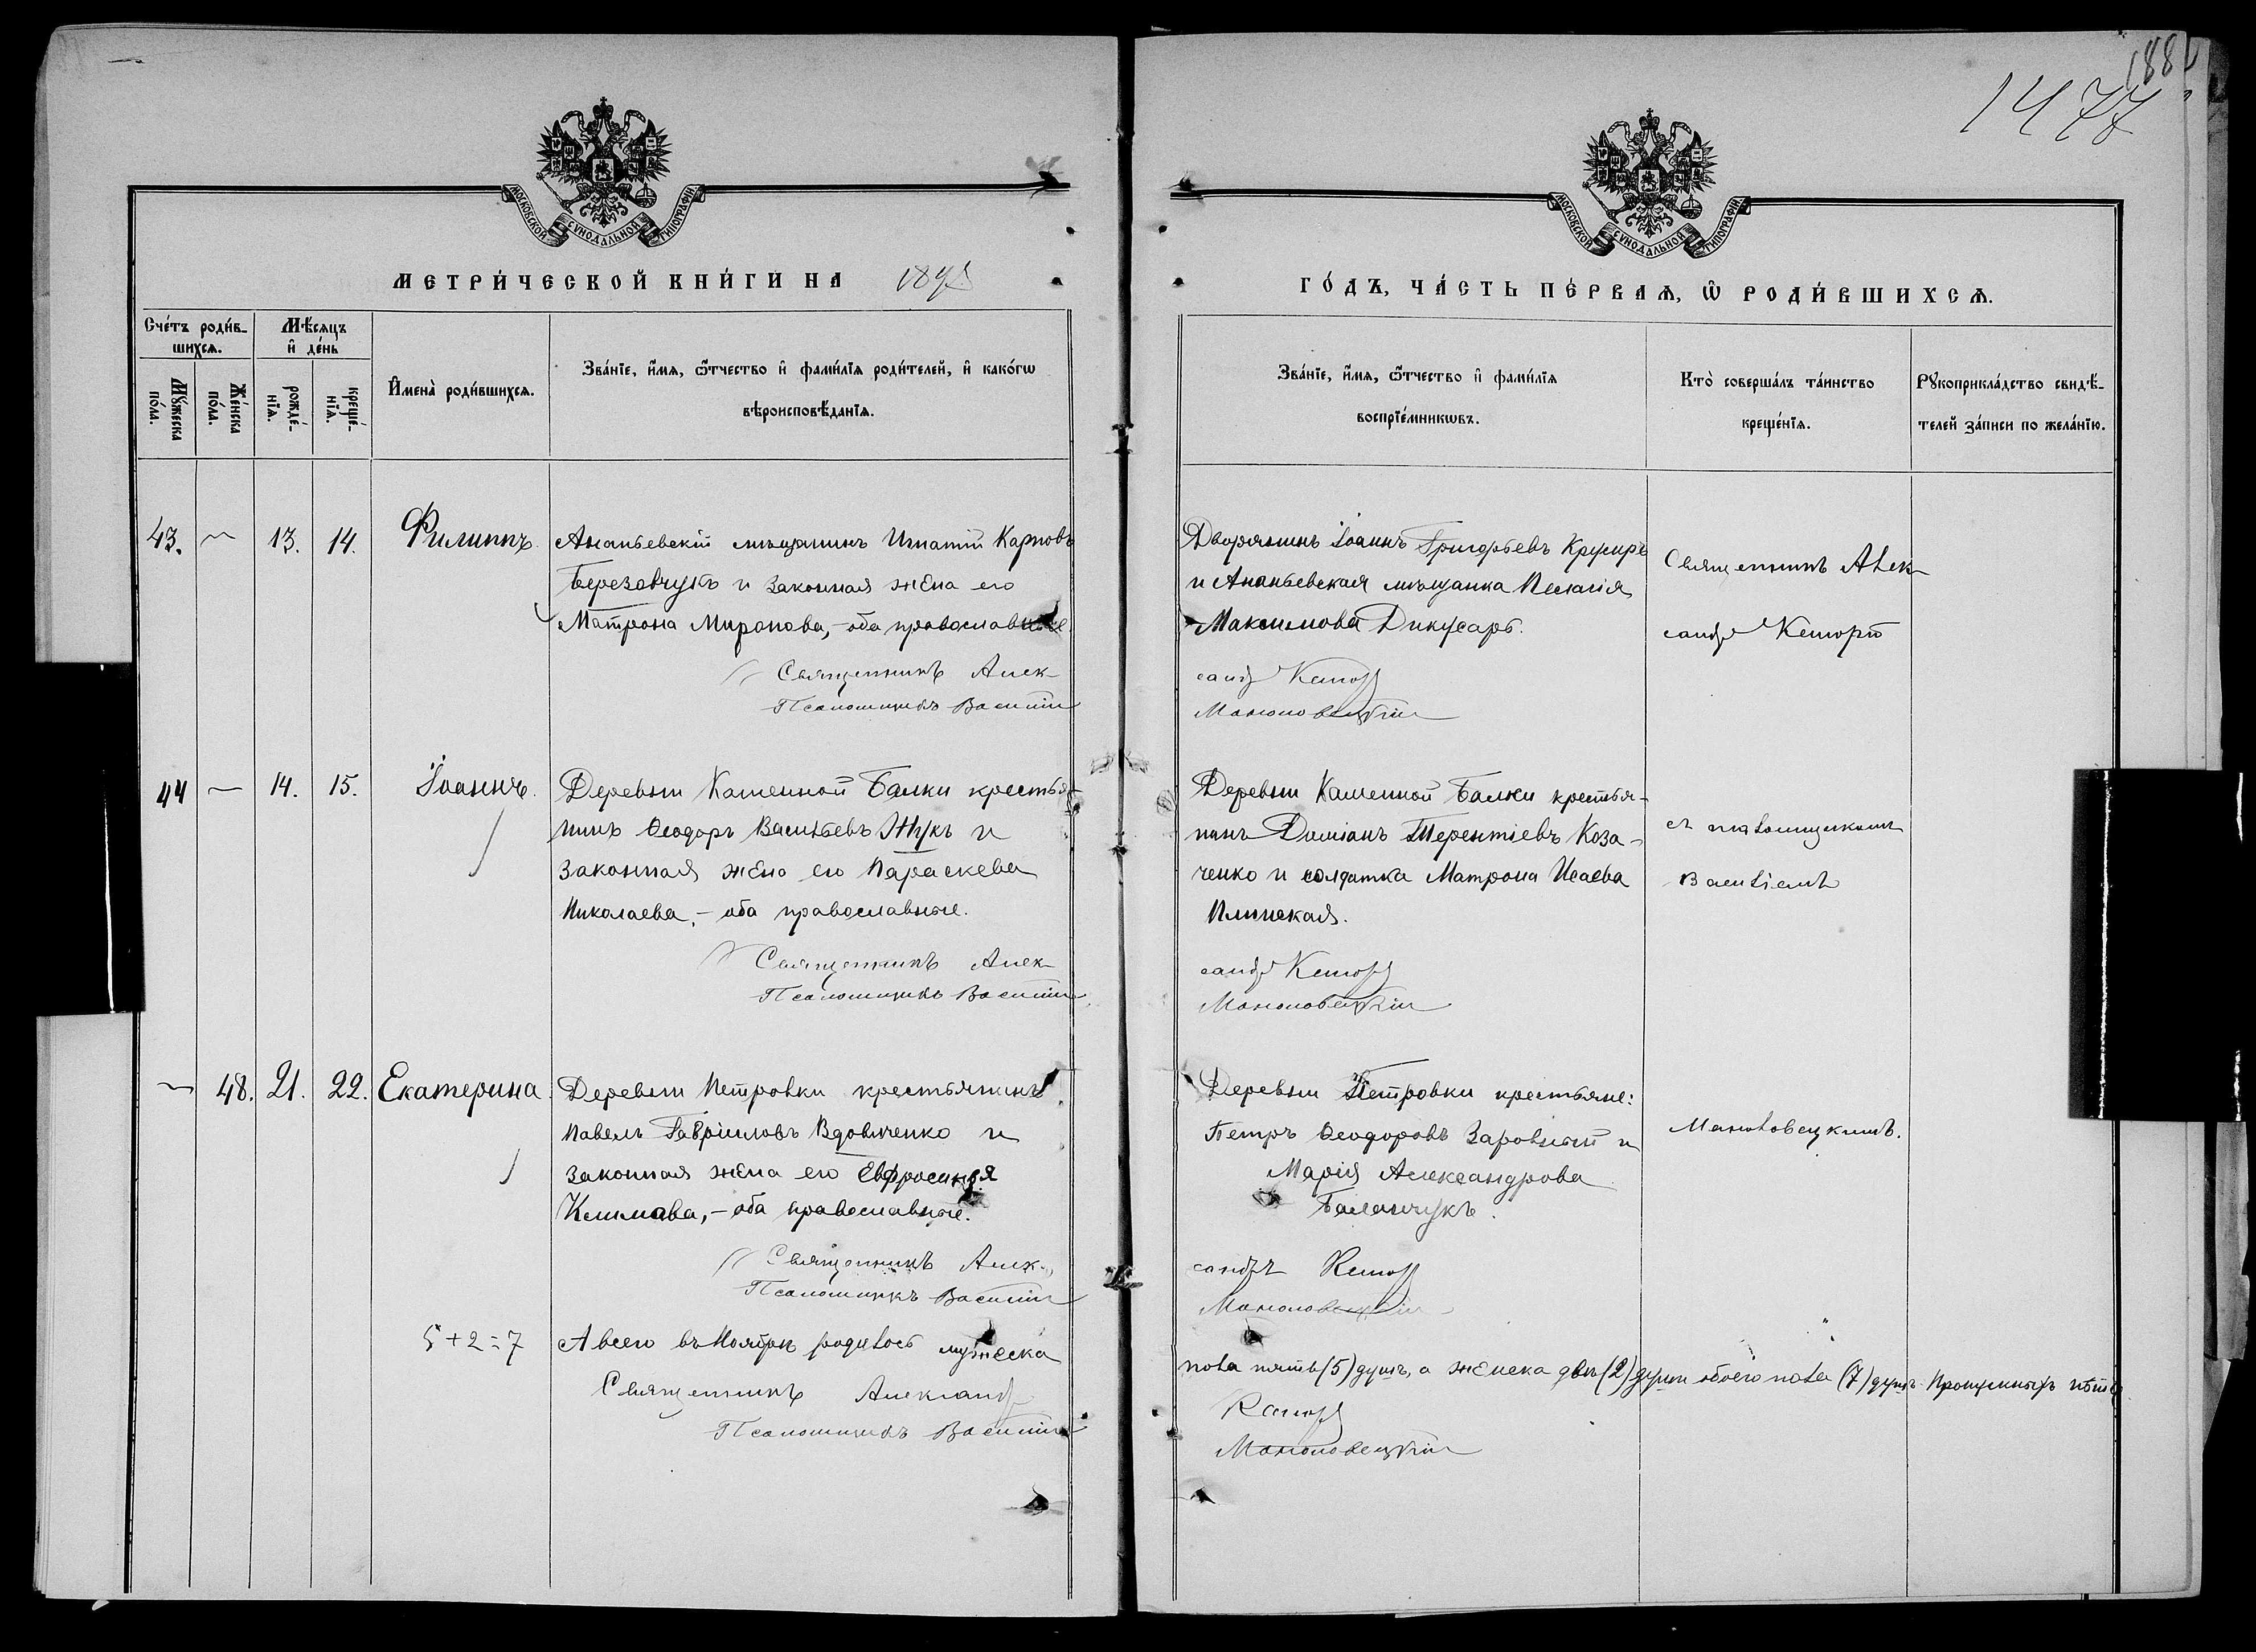 1477
188
МОСКОВСКОЙ СѴНОДАЛЬНОЙ ТИПОГРАФІИ
МОСКОВСКОЙ СѴНОДАЛЬНОЙ ТИПОГРАФІИ
МЕТРИ́ЧЕСКОЙ КНИ́ГИ НА
ГО́ДЪ, ЧА́СТЬ ПЕ́РВАѦ, Ѽ РОДИ́ВШИХСѦ.
Сче́тъ роди́в-
шихсѧ.
Мѣ́сѧцъ
и де́нь
Мꙋ́жеска
по́ла.
Же́нска
по́ла.
рожде́-
нїѧ.
креще́-
нїѧ.
Имена̀ роди́вшихсѧ.
Зва́нїе, и́мѧ, ѻ́тчество и фами́лїѧ роди́телей, и како́гѡ
вѣроисповѣ́данїѧ.
Зва́нїе, и́мѧ, ѻ́тчество и фами́лїѧ
воспрїе́мникѡвъ.
Кто̀ соверша́лъ та́инство
креще́нїѧ.
Рꙋкоприкла́дство свидѣ́-
телей за́писи по жела́нїю.
43. 13. 14. Филиппъ.
Ананьевскій мѣщанинъ Игнатій Карповъ
Березовчукъ и законная жена его
Матрона Миронова, - оба православные
Священникъ Алек-
Псаломщикъ Василій
Дворянинъ Іоаннъ Григорьевъ Крусиръ
и Ананьевская мѣщанка Пелагія
Максимова Дикусаръ.
Маноловецкій
Священникъ Алек-
44 14. 15. Іоаннъ.
Деревни Каменной Балки крестья-
нинъ Ѳеодоръ Васильевъ Жукъ и
законная жена его Параскева
Николаева, - оба православные.
Священникъ Алек-
Псаломщикъ Василій
Деревни Каменной Балки крестья-
нинъ Даміанъ Терентіевъ Коза-
ченко и солдатка Матрона Исаева
Маноловецкій
съ псаломщикомъ
Василіемъ
48. 21. 22. Екатерина
Деревни Петровки крестьянинъ
Павелъ Гавріиловъ Вдовиченко и
законная жена его Евфросинія
Климова, - оба православные.
Священникъ Алек-
Псаломщикъ Василій
Деревни Петровки крестьяне:
Петръ Ѳеодоровъ Заровный и
Марія Александрова
Баланчукъ.
Маноловецкій
Маноловецкимъ.
5+2=7
А всего въ Ноябрѣ родилось мужеска
пола пять (5) душъ, а женска двѣ (2) души обоего пола (7) душъ. Пропускныхъ нѣтъ
Священникъ Александ
Псаломщикъ Василій
Маноловецкій